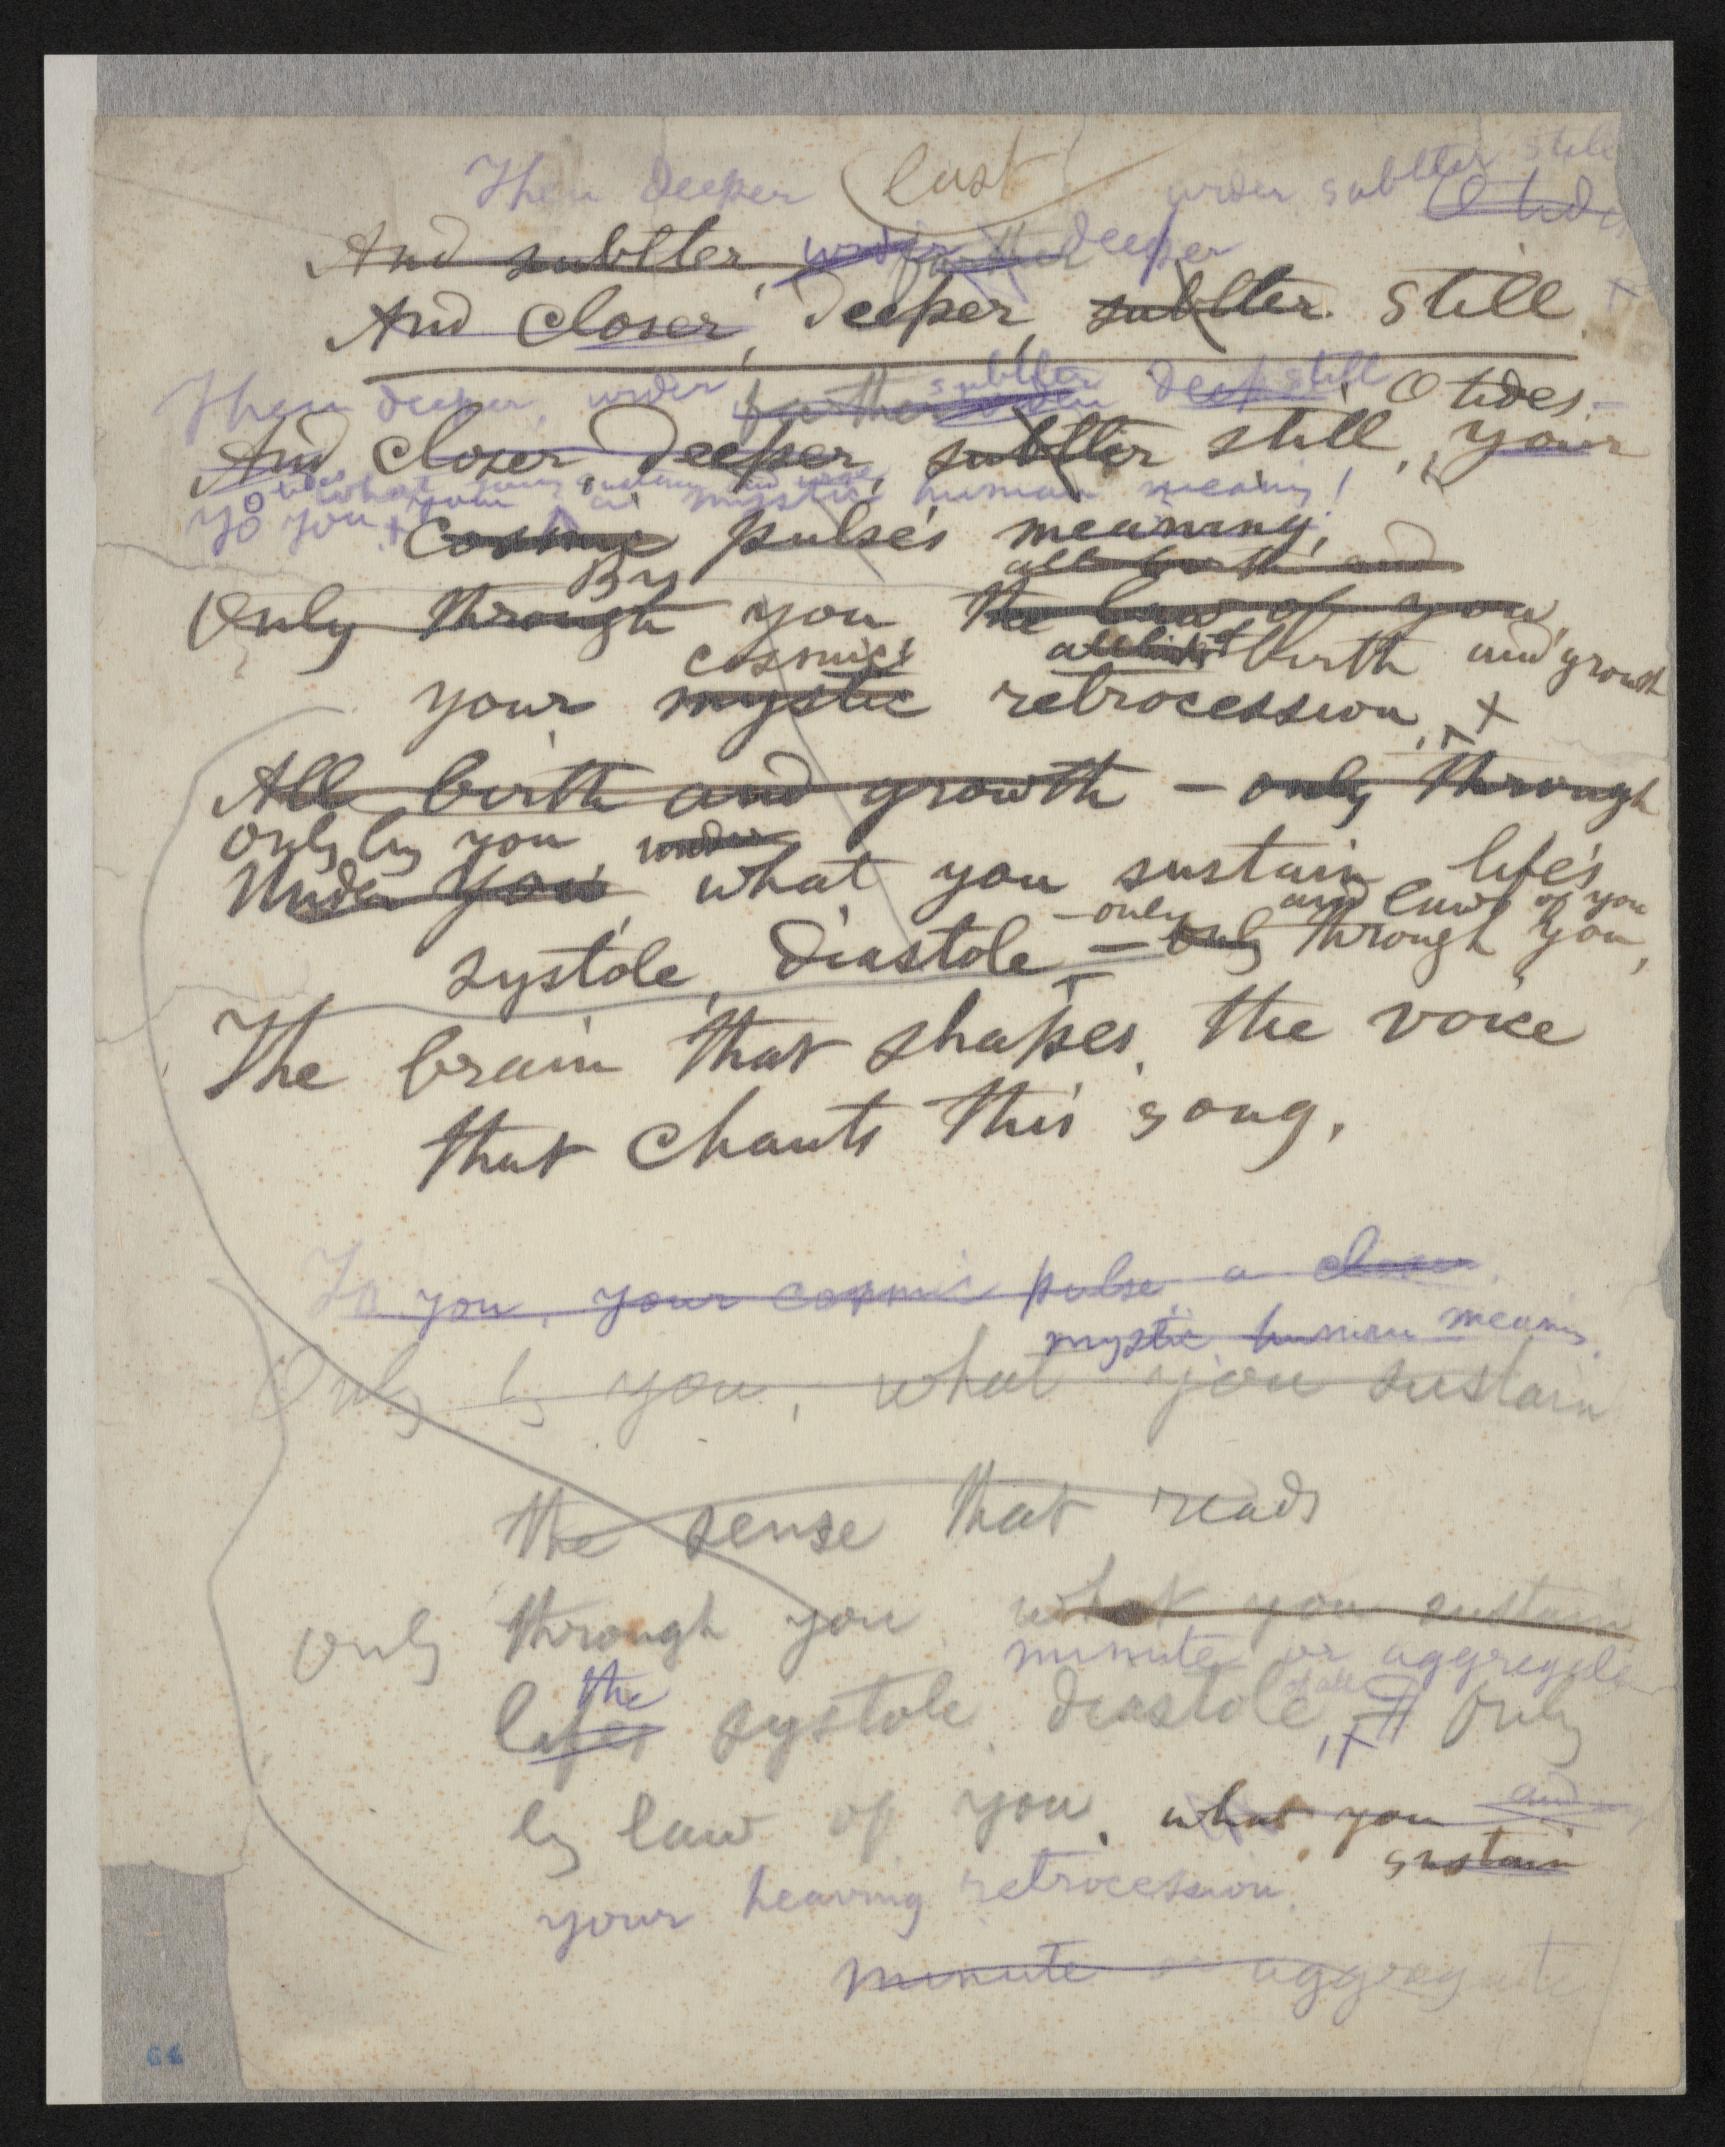 Then deeper last wider subtler still
O tide
And subtler, wider farther deeper
And closer, deeper, subtler still.
Then deeper, wider farther subtler wider deep still, O tides
And closer deeper, subtler still, your
To you, mystic human meaning!
Cosmic pulse's meaning,
By all birth and
Only through you the law of you
cosmic birth and growth
your mystic retrocession,
All birth and growth — only through
Only by you under
Under you what you sustain life's
— only and law of you
systole, diastole — only through you,
The brain that shapes, the voice
that chants this song,
To you, your cosmic pulse a closer
mystic human meaning
Only by you, what you sustain
the sense that reads
Only through you what you sustain
minute or aggregate
the
life's systole diastole, Only
by law of you, what you and
sustain
your heaving retrocession,
minute or aggregate
64